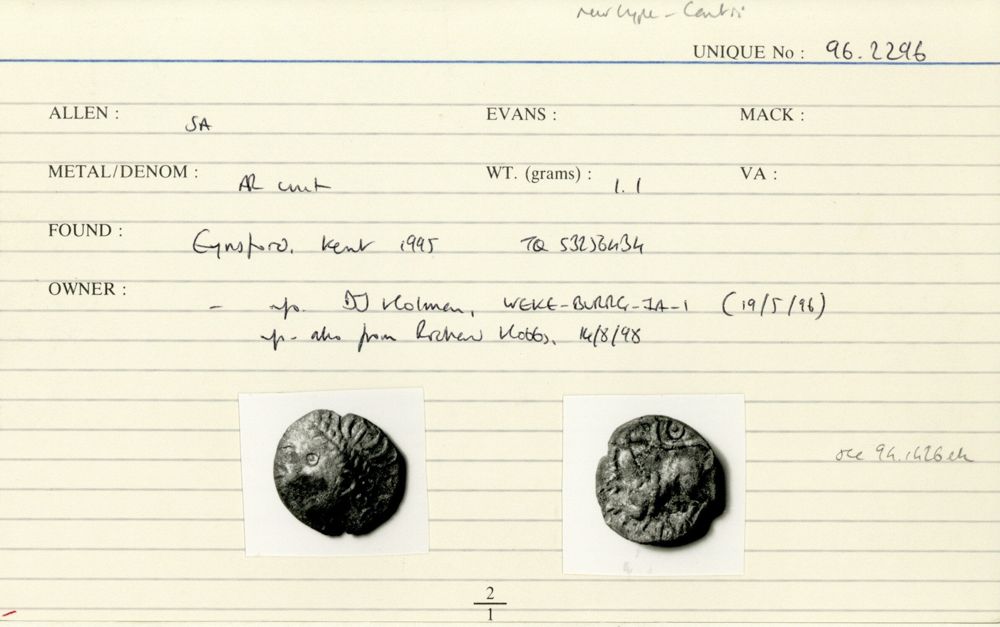 new type - Cantii
UNIQUE No : 96.2296
ALLEN : SA EVANS : MACK :
METAL/DENOM : AR unit WT. (grams) : 1.1 VA :
FOUND : Eynsford, Kent 1995 TQ 53256434
OWNER : - info. DJ Holman, WEKE-BURRG-IA-1 (19/5/96)
info - also from Richard Hobbs, 14/8/98
see 94.1426 etc
2
1